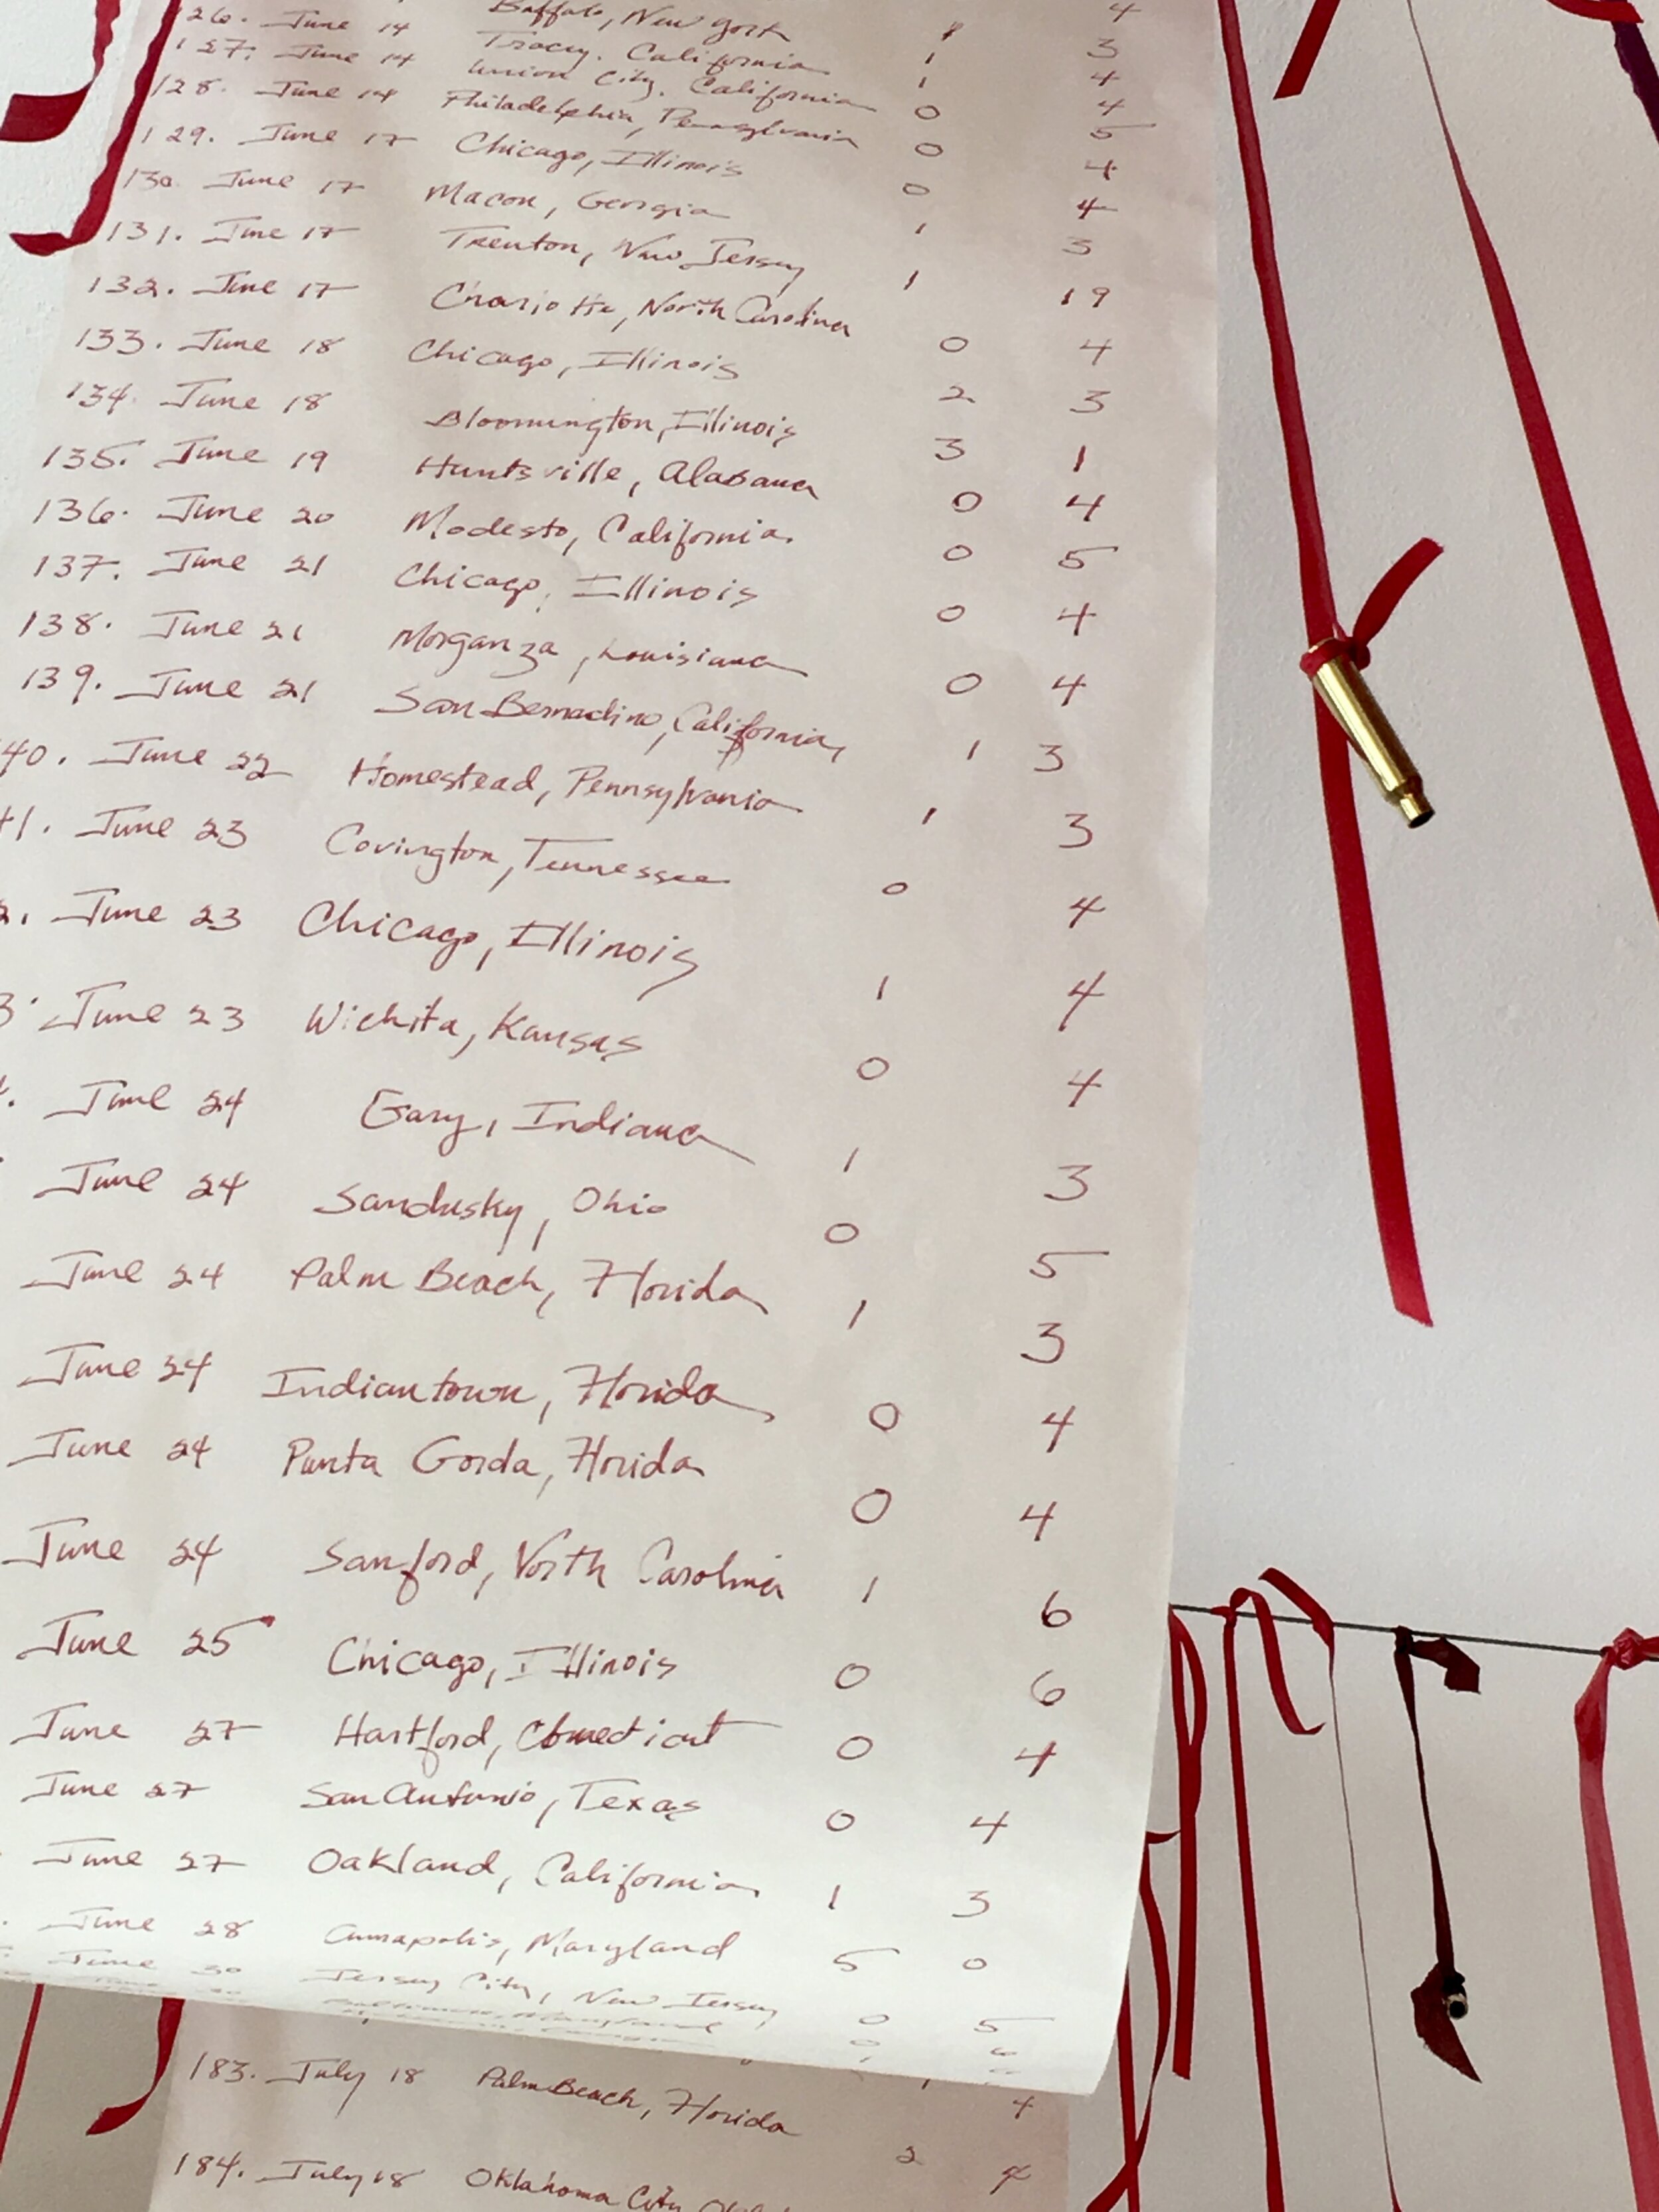 26. June 14 Buffalo, New York 1 4
127. June 14 Tracey, California 1 4
Union City, California 0 5
128. June 14 Philadelphia, Pennsylvania 0 4
129. June 17 Chicago, Illinois 0 4
130. June 17 Macon, Georgia 1 3
131. June 17 Trenton, New Jersey 1 19
132. June 17 Charlotte, North Carolina 0 4
133. June 18 Chicago, Illinois 2 3
134. June 18 Bloomington, Illinois 3 1
135. June 19 Huntsville, Alabama 0 4
136. June 20 Modesto, California 0 5
137. June 21 Chicago, Illinois 0 4
138. June 21 Morganza, Louisiana 0 4
139. June 21 San Bernadino, California 1 3
40. June 22 Homestead, Pennsylvania 1 3
41. June 23 Covington, Tennessee 0 4
2. June 23 Chicago, Illinois 1 4
3. June 23 Wichita, Kansas 0 4
June 24 Gary, Indiana 1 3
June 24 Sandusky, Ohio 0 5
June 24 Palm Beach, Florida 1 3
June 24 Indiantown, Florida 0 4
June 24 Punta Gorda, Florida 0 4
June 24 Sanford, North Carolina 1 6
June 25 Chicago, Illinois 0 6
June 27 Hartford, Connecticut 0 4
June 27 San Antonio, Texas 0 4
June 27 Oakland, California 1 3
June 28 Annapolis, Maryland 5 0
June 30 Jersey City, New Jersey 0 5
183. July 18 Palm Beach, Florida 2 4
184. July 18 Oklahoma City